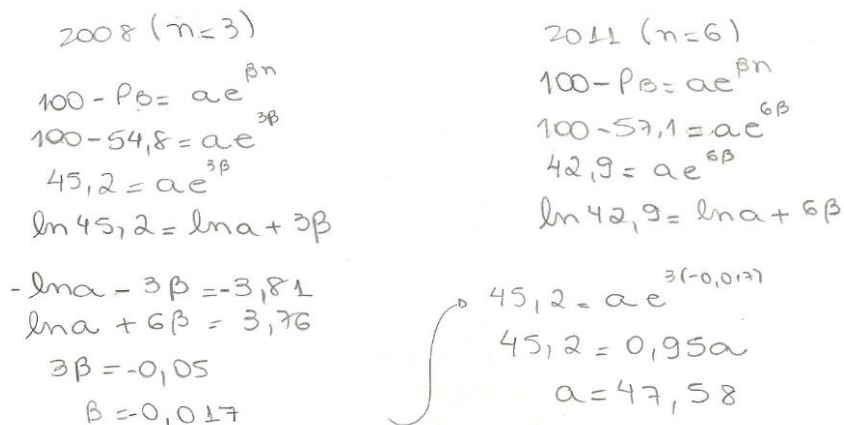 2008 (n=3)
100 - PB = ae^βn
100 - 54,8 = ae^3β
45,2 = ae^3β
ln 45,2 = ln a + 3β
- ln a - 3β = -3,81
ln a + 6β = 3,76
3β = -0,05
β = -0,017
2011 (n=6)
100 - PB = ae^βn
100 - 57,1 = ae^6β
42,9 = ae^6β
ln 42,9 = ln a + 6β
45,2 = ae^3(-0,017)
45,2 = 0,95a
a = 47,58